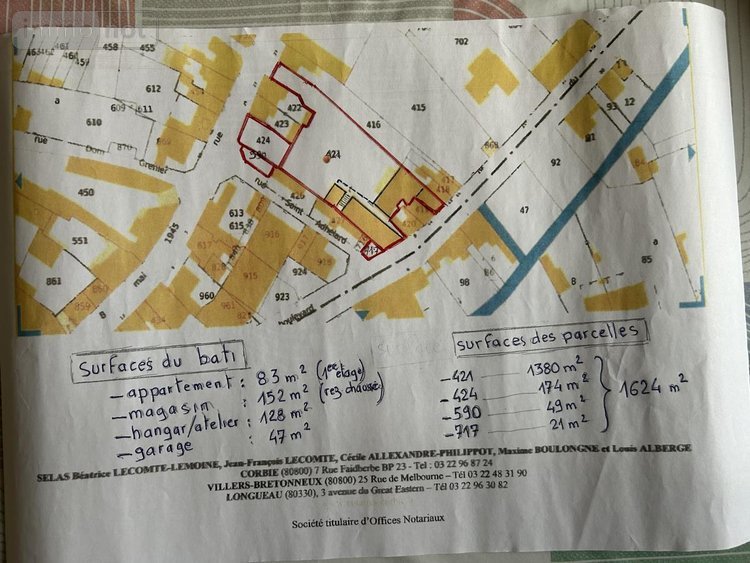 463
461
464
459
458
455
702
612
a
609
611
610
rue
Dom
870
Grenier
rue
422
423
416
415
424
590
421
93
12
91
92
84
450
rue
Saint
Adhélard
613
615
916
617
915
918
924
923
960
961
551
861
860
859
8 mai 1945
418
420
717
47
6
98
86
8
85
a
boulevard
du
surfaces du bati
- appartement : 83 m² (1er étage)
- magasin : 152 m² (rez chaussé)
- hangar/atelier : 128 m²
- garage : 47 m²
surfaces des parcelles
- 421 1380 m²
- 424 174 m²
- 590 49 m²
- 717 21 m²
1624 m²
SELAS Béatrice LECOMTE-LEMOINE, Jean-François LECOMTE, Cécile ALLEXANDRE-PHILIPPOT, Maxime BOULONGNE et Louis ALBERGE
CORBIE (80800) 7 Rue Faidherbe BP 23 - Tel : 03 22 96 87 24
VILLERS-BRETONNEUX (80800) 25 Rue de Melbourne – Tél 03 22 48 31 90
LONGUEAU (80330), 3 avenue du Great Eastern – Tél 03 22 96 30 82
Société titulaire d'Offices Notariaux